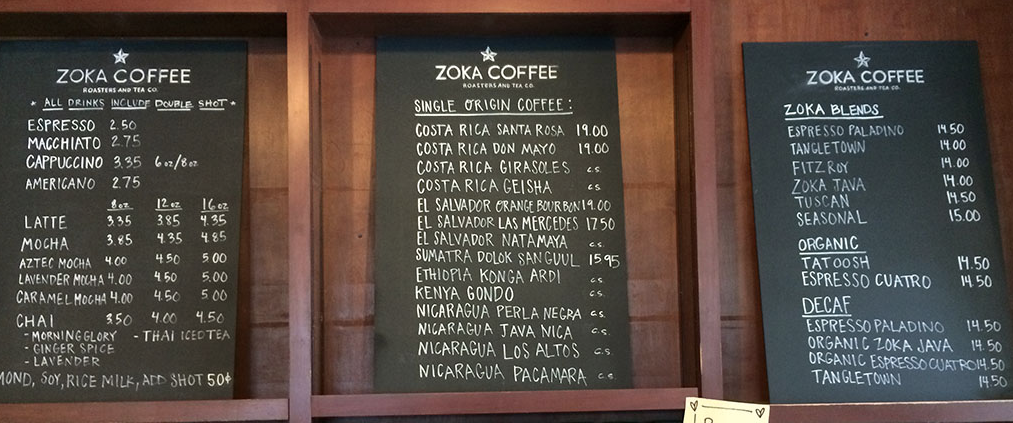 ZOKA COFFEE
ROASTERS AND TEA CO.
* ALL DRINKS INCLUDE DOUBLE SHOT *
ESPRESSO 2.50
MACCHIATO 2.75
CAPPUCCINO 3.35 6oz/8oz
AMERICANO 2.75
8oz 12oz 16oz
LATTE 3.35 3.85 4.35
MOCHA 3.85 4.35 4.85
AZTEC MOCHA 4.00 4.50 5.00
LAVENDER MOCHA 4.00 4.50 5.00
CARAMEL MOCHA 4.00 4.50 5.00
CHAI 3.50 4.00 4.50
- MORNING GLORY - THAI ICED TEA
- GINGER SPICE
- LAVENDER
MOND, SOY, RICE MILK, ADD SHOT 50¢
ZOKA COFFEE
ROASTERS AND TEA CO.
SINGLE ORIGIN COFFEE:
COSTA RICA SANTA ROSA 19.00
COSTA RICA DON MAYO 19.00
COSTA RICA GIRASOLES c.s.
COSTA RICA GEISHA c.s.
EL SALVADOR ORANGE BOURBON 19.00
EL SALVADOR LAS MERCEDES 17.50
EL SALVADOR NATAMAYA c.s.
SUMATRA DOLOK SANGUUL 15.95
ETHIOPIA KONGA ARDI c.s.
KENYA GONDO c.s.
NICARAGUA PERLA NEGRA c.s.
NICARAGUA JAVA NICA c.s.
NICARAGUA LOS ALTOS c.s.
NICARAGUA PACAMARA c.s.
ZOKA COFFEE
ROASTERS AND TEA CO.
ZOKA BLENDS
ESPRESSO PALADINO 14.50
TANGLETOWN 14.00
FITZROY 14.00
ZOKA JAVA 14.00
TUSCAN 14.50
SEASONAL 15.00
ORGANIC
TATOOSH 14.50
ESPRESSO CUATRO 14.50
DECAF
ESPRESSO PALADINO 14.50
ORGANIC ZOKA JAVA 14.50
ORGANIC ESPRESSO CUATRO 14.50
TANGLETOWN 14.50